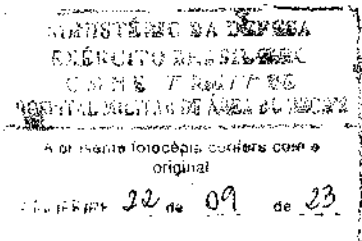 MINISTÉRIO DA DEFESA
EXÉRCITO BRASILEIRO
C M N E 7ª RM/7ª DE
HOSPITAL MILITAR DE ÁREA DE RECIFE
A presente fotocópia confere com o
original
22 de 09 de 23